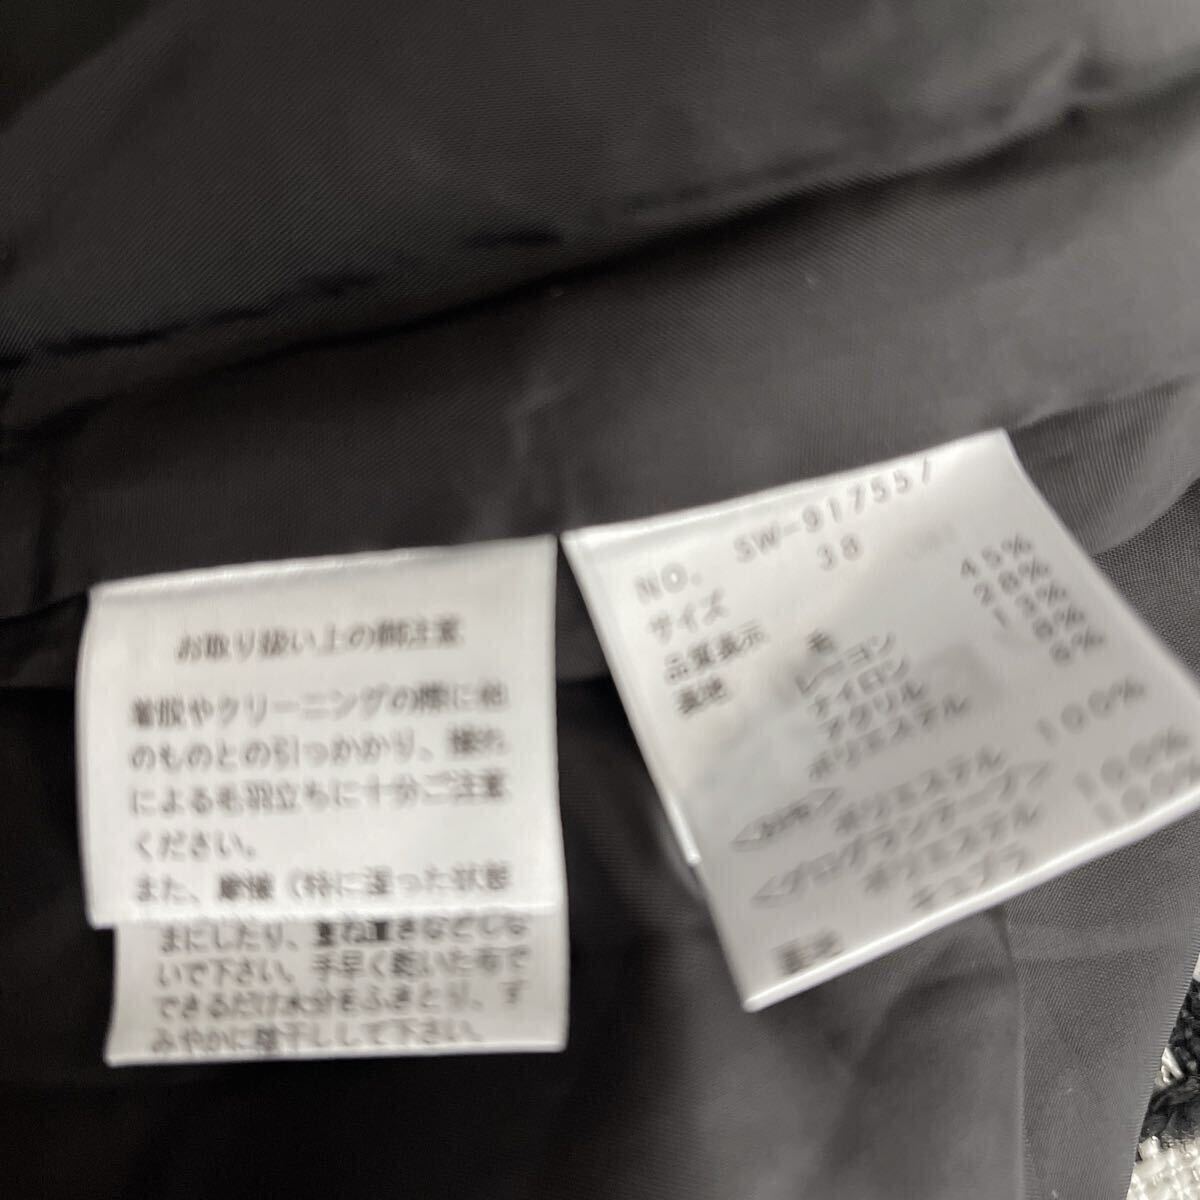 お取り扱い上の御注意
着脱やクリーニングの際に他
のものとの引っかかり、擦れ
による毛羽立ちに十分ご注意
ください。
また、摩擦（特に湿った状態
まにしたり、重ね置きなどしな
いで下さい。手早く乾いた布で
できるだけ水分をふきとり、す
みやかに陰干しして下さい。
NO. SW-917557
サイズ 38
品質表示
表地 毛 45%
レーヨン 28%
ナイロン
アクリル
ポリエステル
ポリエステル 100%
<グログランテープ>
ポリエステル 100%
裏地 キュプラ 100%